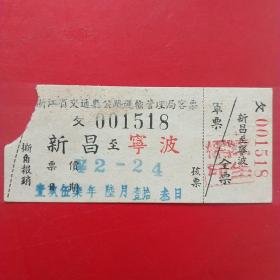 浙江省交通廳公路運輸管理局客票
攵 001518
新昌至寧波
票價 ¥2-24
日期 壹玖伍柒年 陸月壹拾叁日
撕角報銷
單票
孩票
新昌至寧波
全票
攵 001518